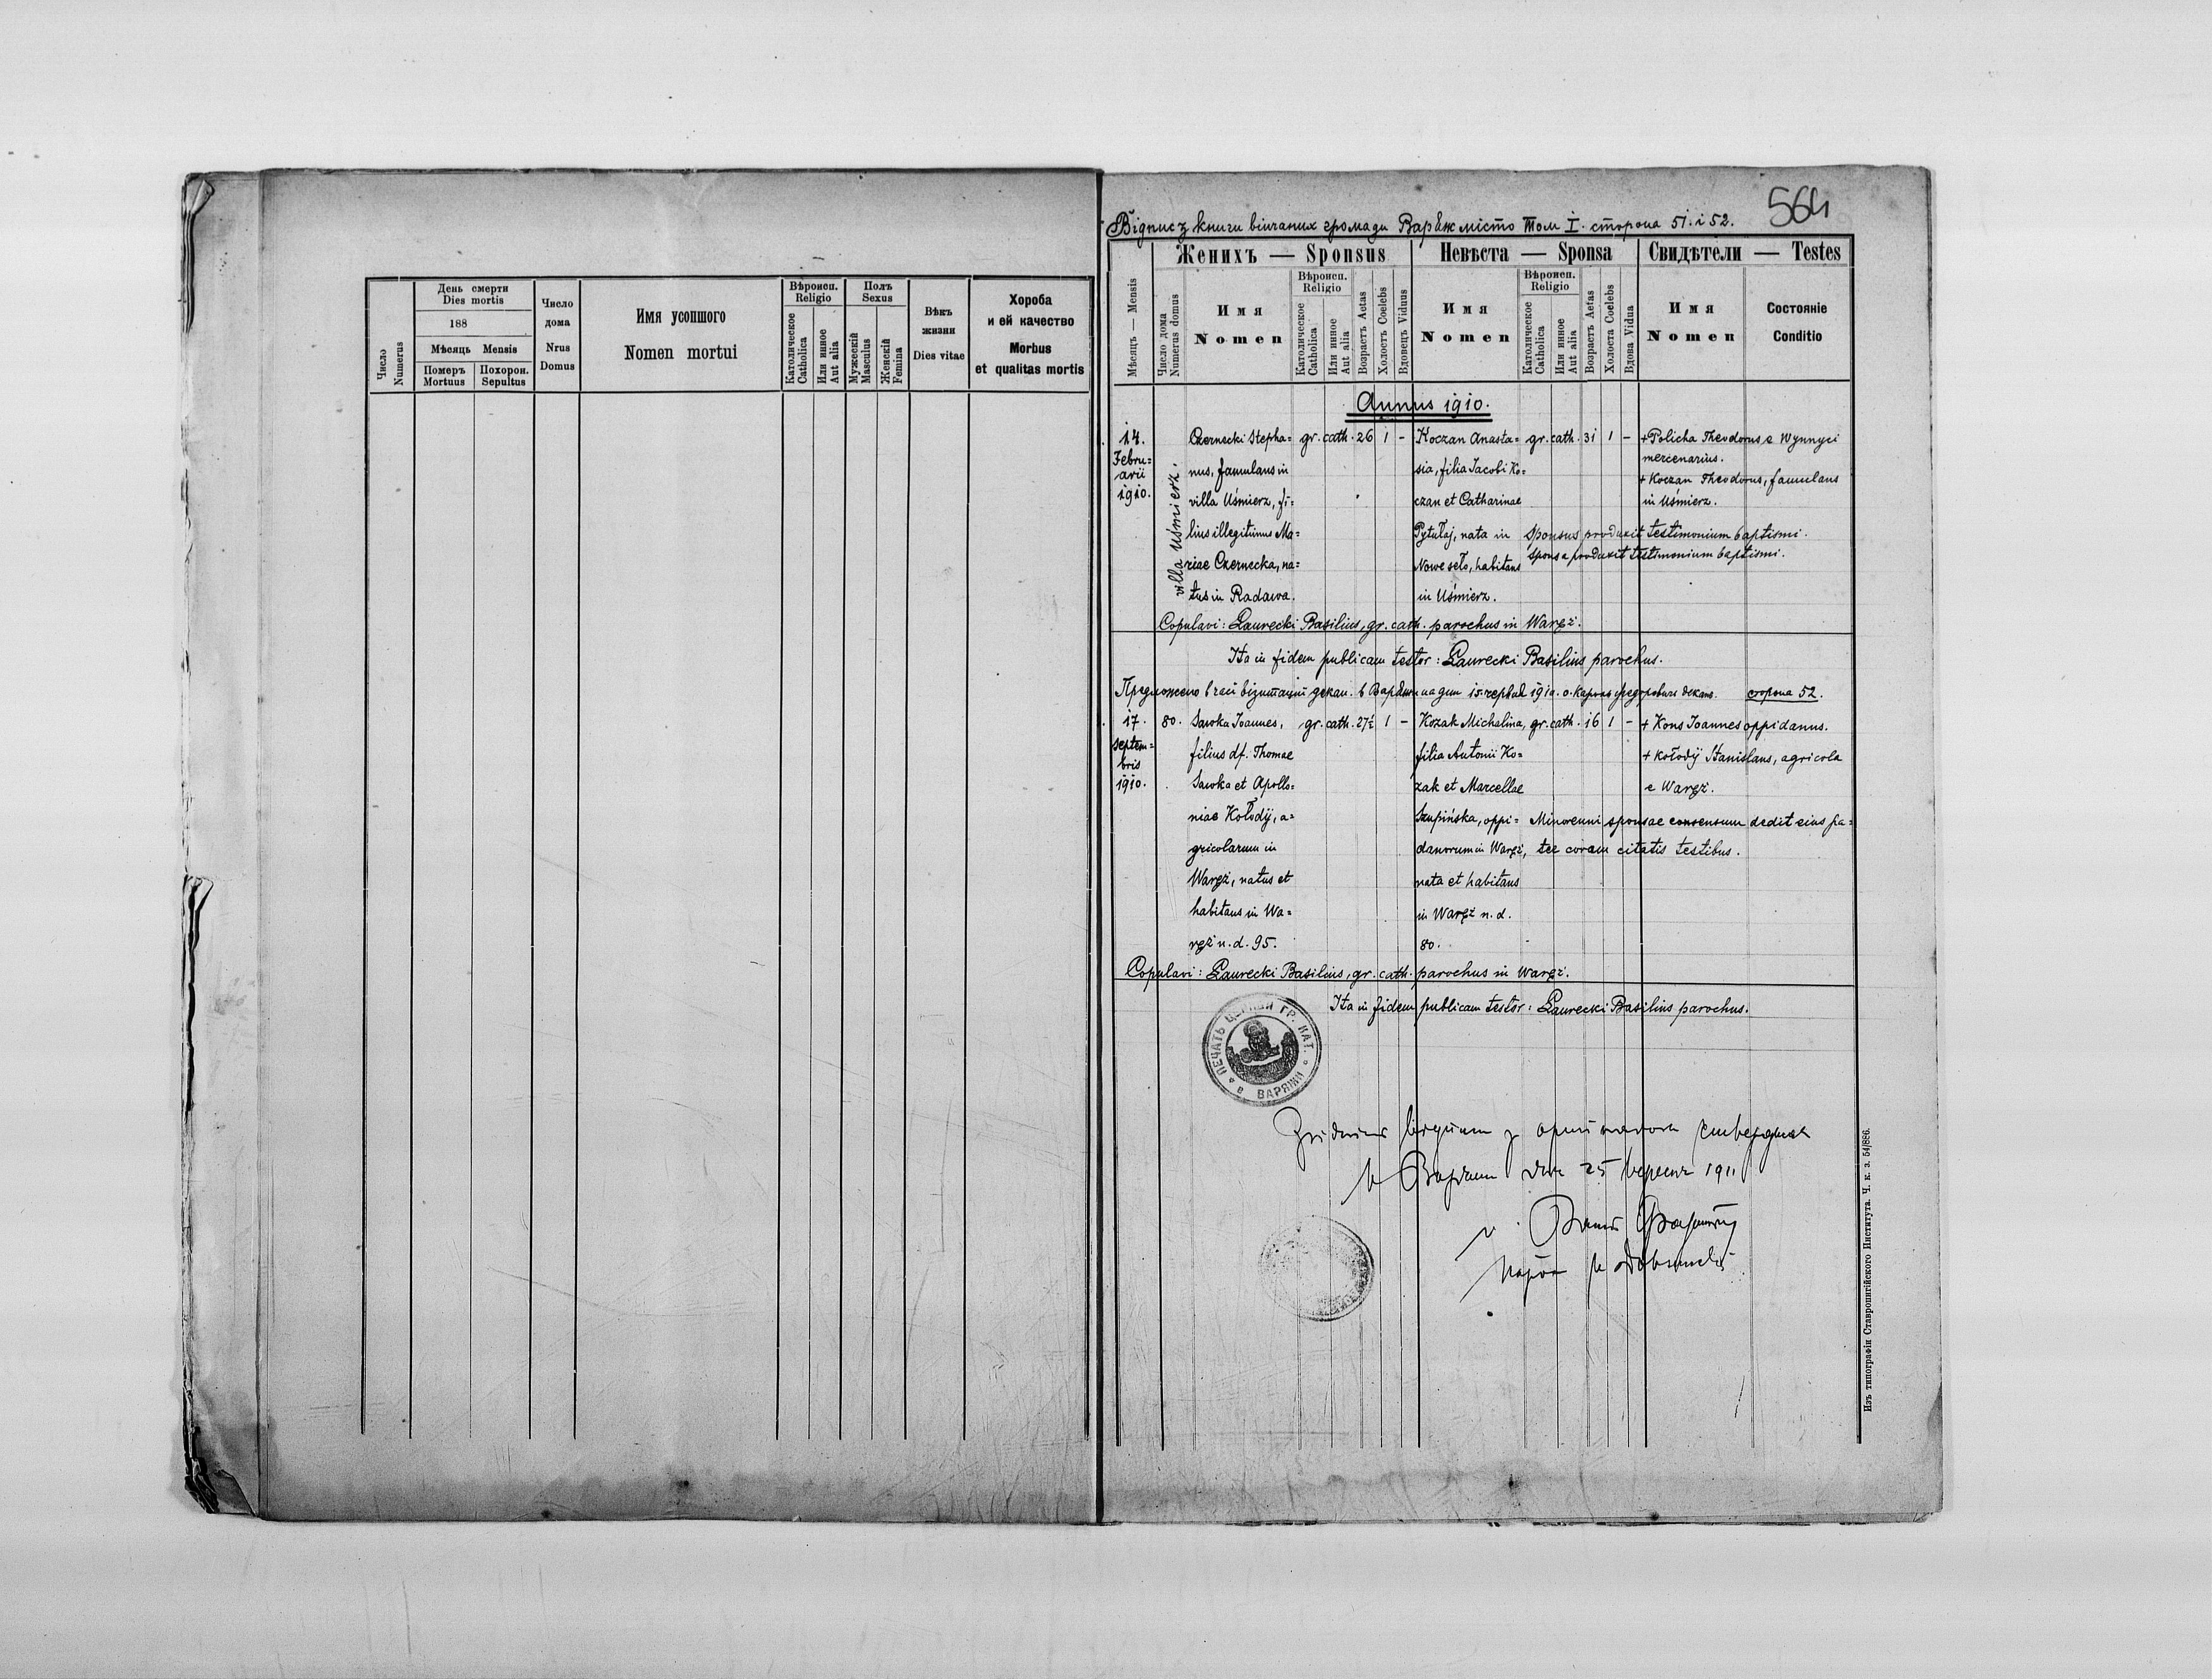 564
Відпис з книги вінчаних громади Варяж місто Том I. сторона 51. і 52.
Число
Numerus
День смерти
Dies mortis
188
Мѣсяць Mensis
Померъ
Mortuus
Похорон.
Sepultus
Число
дома
Nrus
Domus
Имя усопшого
Nomen mortui
Вѣроисп.
Religio
Католическое
Catholica
Или инное
Aut alia
Полъ
Sexus
Мужескій
Masculus
Женскій
Femina
Вѣкъ
жизни
Dies vitae
Хороба
и ей качество
Morbus
et qualitas mortis
Мѣсяцъ — Mensis
Женихъ — Sponsus
Число дома
Numerus domus
Имя
Nomen
Вѣроисп.
Religio
Католическое
Catholica
Или инное
Aut alia
Возрастъ Aetas
Холостъ Coelebs
Вдовецъ Viduus
Невѣста — Sponsa
Имя
Nomen
Вѣроисп.
Religio
Католическое
Catholica
Или инное
Aut alia
Возрастъ Aetas
Холоста Coelebs
Вдова Vidua
Свидѣтели — Testes
Имя
Nomen
Состояніе
Conditio
Annus 1910.
14.
Febru=
arii
1910.
villa Uśmierz.
Czernecki Stepha=
nus, famulans in
villa Uśmierz, fi=
lius illegitimus Ma=
riae Czernecka, na=
tus in Radawa.
gr. cath. 26 1 –
Koczan Anasta=
sia, filia Jacobi Ko=
czan et Catharinae
Pytułaj, nata in
Nowe seło, habitans
in Uśmierz.
gr. cath. 31 1 –
+ Policha Theodorus e Wynnyci
mercenarius.
+ Koczan Theodorus, famulans
in Uśmierz.
Sponsus produxit testimonium baptismi.
Sponsa produxit testimonium baptismi.
Copulavi: Ławrecki Basilius, gr. cath. parochus in Waręż.
Ita in fidem publicam testor: Ławrecki Basilius parochus.
Предложено в часі візитациї декан. в на дни 15. 1910. о. декан. сторона 52.
17.
Septem=
bris
1910.
80.
Sawka Joannes,
filius df. Thomae
Sawka et Apollo=
niae Kołodij, a=
gricolarum in
Waręż, natus et
habitans in Wa=
ręż n. d. 95.
gr. cath. 27½ 1 –
Kozak Michalina,
filia Antonii Ko=
zak et Marcellae
Szupińska, oppi=
danorum in Waręż,
nata et habitans
in Waręż n. d.
80.
gr. cath. 16 1 –
+ Kons Joannes oppidanus.
+ Kołodij Stanislaus, agricola
e Waręż.
Minorenni sponsae consensum dedit eius pa=
ter coram citatis testibus.
Copulavi: Ławrecki Basilius, gr. cath. parochus in Waręż.
Ita in fidem publicam testor: Ławrecki Basilius parochus.
ПЕЧАТЬ ЦЕРКВИ ГР. КАТ. в ВАРЯЖИ
25 вересня 1911
Изъ типографіи Ставропигійского Института. Ч. к. з. 54/886.